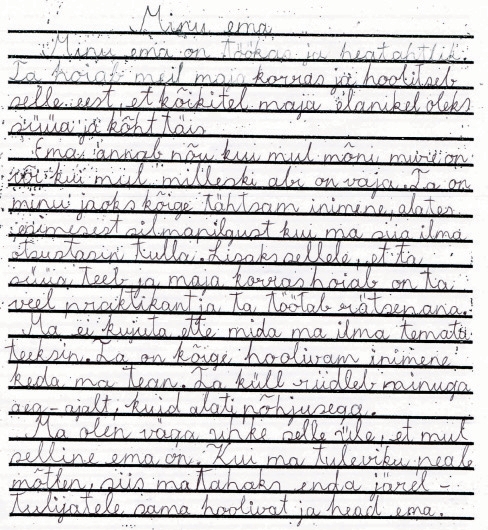 Minu ema
Minu ema on töökas ja heatahtlik.
Ta hoiab meil maja korras ja hoolitseb
selle eest, et kõikitel maja elanikel oleks
süüa ja kõht täis.
Ema annab nõu kui mul mõni mure on
või kui mul milleski abi on vaja. Ta on
minu jaoks kõige tähtsam inimene, alates
esimesest silmapilgust kui ma siia ilma
otsustasin tulla. Lisaks sellele, et ta
süüa teeb ja maja korras hoiab on ta
veel praktikant ja ta töötab rätsepana.
Ma ei kujuta ette mida ma ilma temata
teeksin. Ta on kõige hoolivam inimene
keda ma tean. Ta küll riidleb minuga
aeg-ajalt, kuid alati põhjusega.
Ma olen väga uhke selle üle, et mul
selline ema on. Kui ma tuleviku peale
mõtlen, siis ma tahaks enda järel-
tulijatele sama hoolivat ja head ema.